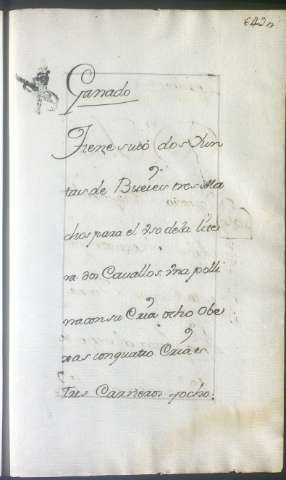 642
Ganado
Tiene su cò dos Yun
tas de Bueies tres Ma
chos para el Uso de la lite
ra dos Cavallos. Una polli
na con su Cria ocho Obe
xas con quatro Crias
Tres Carneros y ocho